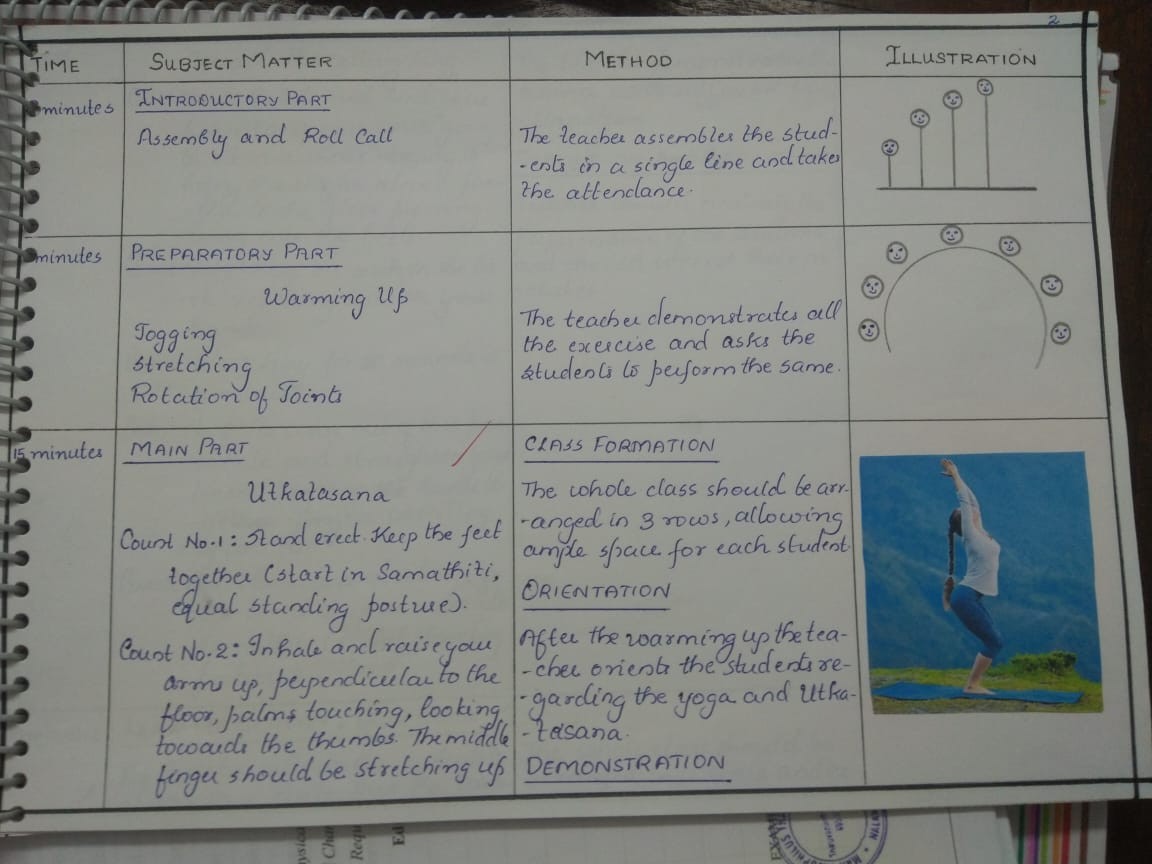 2
TIME
SUBJECT MATTER
METHOD
ILLUSTRATION
minutes
INTRODUCTORY PART
Assembly and Roll Call
The teacher assembles the stud-
-ents in a single line and takes
the attendance.
minutes
PREPARATORY PART
Warming Up
Jogging
Stretching
Rotation of Joints
The teacher demonstrates all
the exercise and asks the
students to perform the same.
15 minutes
MAIN PART
Utkatasana
Count No.1: Stand erect. Keep the feet
together (start in Samathiti,
equal standing posture).
Count No.2: Inhale and raise your
arms up, perpendicular to the
floor, palms touching, looking
towards the thumbs. The middle
finger should be stretching up
CLASS FORMATION
The whole class should be arr-
-anged in 3 rows, allowing
ample space for each student
ORIENTATION
After the warming up the tea-
-cher orients the students re-
-garding the yoga and Utka-
-tasana.
DEMONSTRATION